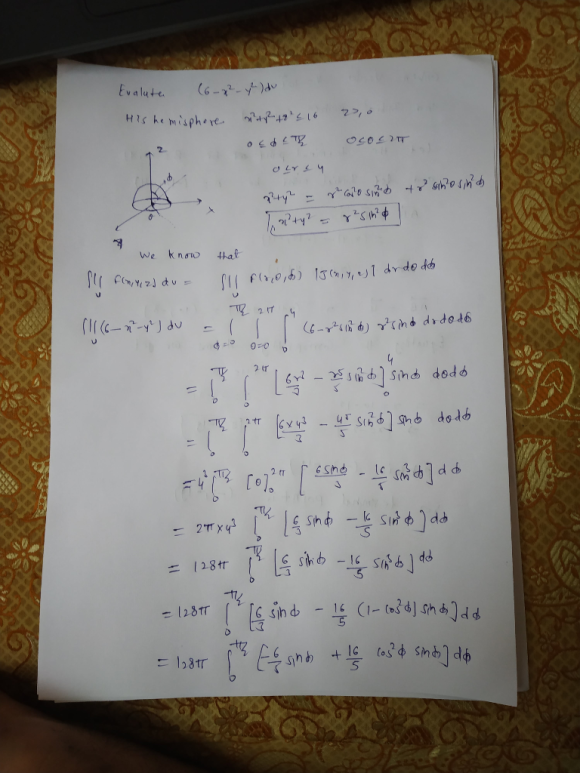 Evalute (6-x²-y²)dv
H is hemisphere x²+y²+z² ≤ 16 z ≥, 0
0 ≤ ϕ ≤ π/2 0 ≤ θ ≤ 2π
0 ≤ r ≤ 4
z
ϕ
x²+y² = r² cos²θ sin²ϕ + r² sin²θ sin²ϕ
θ x
x²+y² = r² sin²ϕ
y
We know that
∭ f(x,y,z) dv = ∭ F(r,θ,ϕ) |J(x,y,z)| dr dθ dϕ
∭(6-x²-y²) dv = ∫_{ϕ=0}^{π/2} ∫_{θ=0}^{2π} ∫_0^4 (6-r² sin²ϕ) r² sinϕ dr dθ dϕ
= ∫_0^{π/2} ∫_0^{2π} [6r³/3 - r⁵/5 sin²ϕ]_0^4 sinϕ dθ dϕ
= ∫_0^{π/2} ∫_0^{2π} [6×4³/3 - 4⁵/5 sin²ϕ] sinϕ dθ dϕ
= 4³ ∫_0^{π/2} [θ]_0^{2π} [6 sinϕ/3 - 16/5 sin³ϕ] dϕ
= 2π×4³ ∫_0^{π/2} [6/3 sinϕ - 16/5 sin³ϕ] dϕ
= 128π ∫_0^{π/2} [6/3 sinϕ - 16/5 sin³ϕ] dϕ
= 128π ∫_0^{π/2} [6/3 sinϕ - 16/5 (1-cos²ϕ) sinϕ] dϕ
= 128π ∫_0^{π/2} [-6/5 sinϕ + 16/5 cos²ϕ sinϕ] dϕ